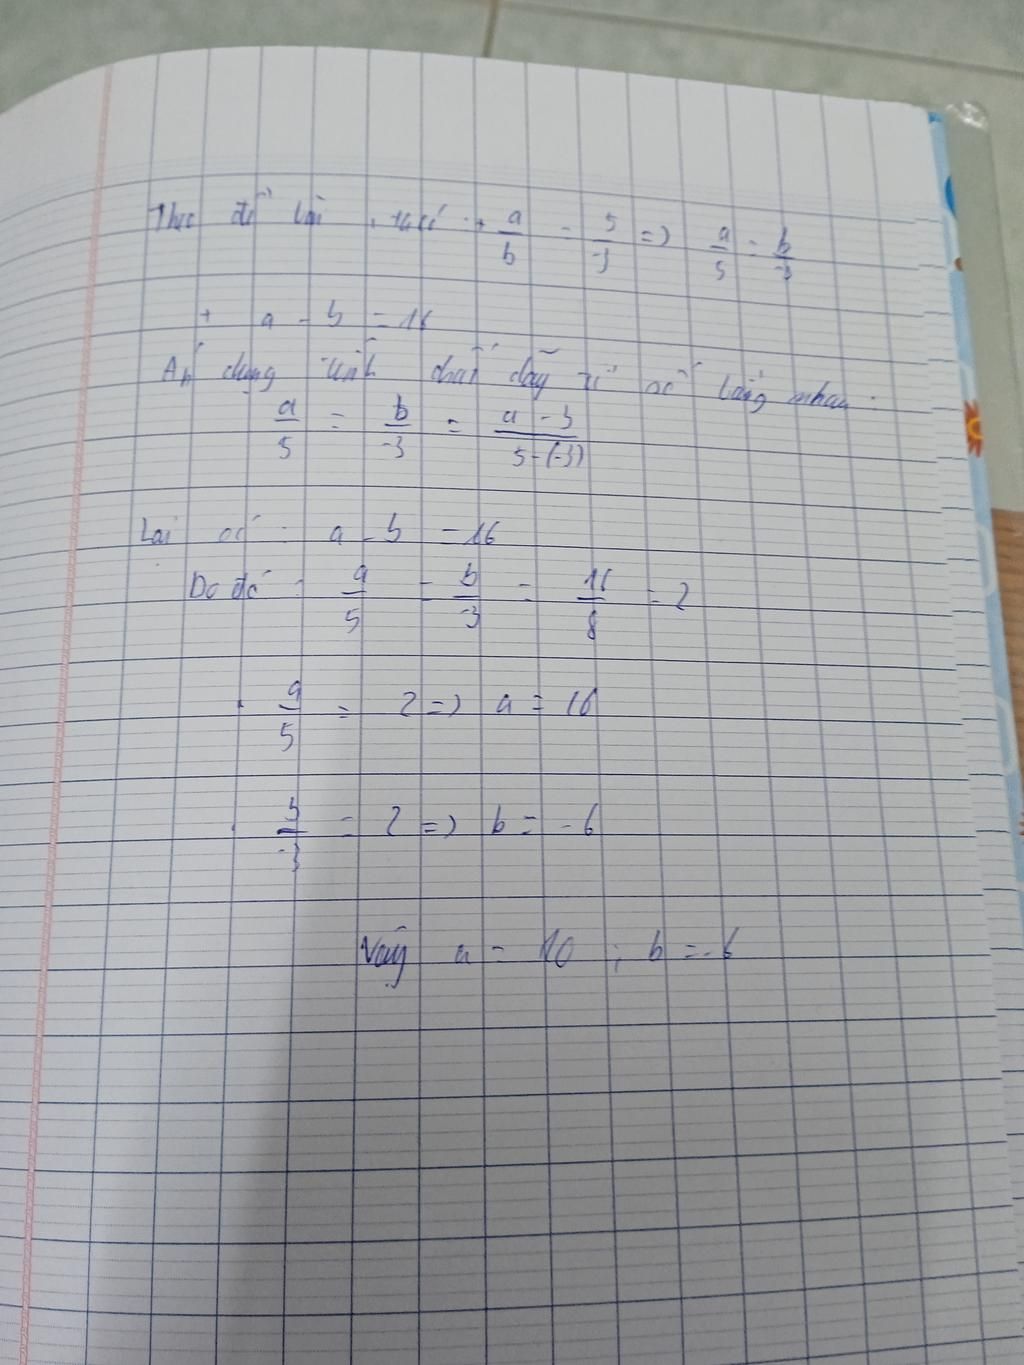 Theo đề bài , ta có : + a/b = 5/-3 => a/5 = b/-3
+ a - b = 16
Áp dụng tính chất dãy tỉ số bằng nhau :
a/5 = b/-3 = a - b/5-(-3)
Lại có : a - b = 16
Do đó : a/5 = b/-3 = 16/8 = 2
. a/5 = 2 => a = 10
. b/-3 = 2 => b = -6
Vậy a = 10 ; b = -6